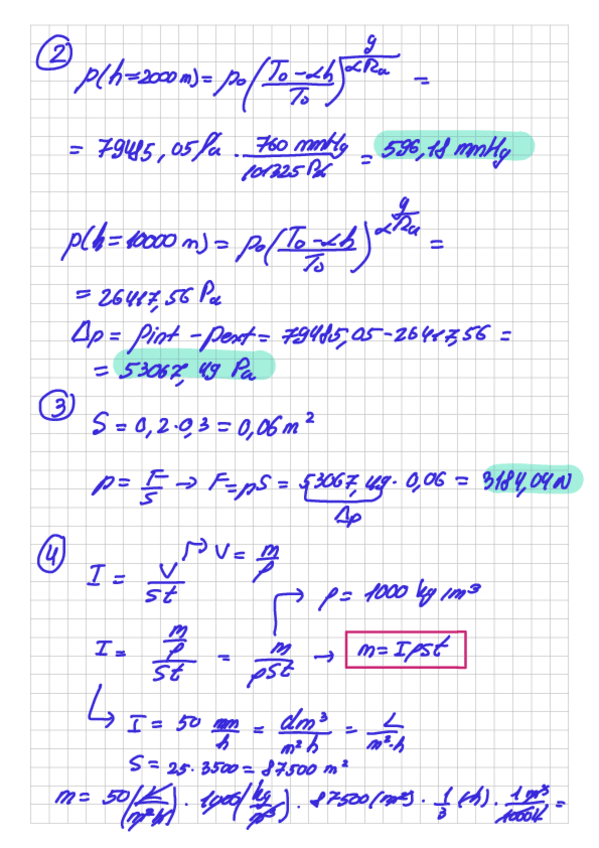 2
p(h=2000 m) = p₀((T₀-αh)/T₀)^(g/(αRa)) =
= 79485,05 Pa · 760 mmHg/101325 Pa = 596,18 mmHg
p(h=10000 m) = p₀((T₀-αh)/T₀)^(g/(αRa)) =
= 26417,56 Pa
Δp = pint - pext = 79485,05 - 26417,56 =
= 53067,49 Pa
3
S = 0,2·0,3 = 0,06 m²
p = F/S → F = pS = 53067,49 · 0,06 = 3184,04 N
Δp
4
I = V/St → V = m/ρ
ρ = 1000 kg/m³
I = (m/ρ)/St = m/ρSt → m = IρSt
I = 50 mm/h = dm³/m²h = L/m²·h
S = 25·3500 = 87500 m²
m = 50 (L/m²h) · 1000 (kg/m³) · 87500 (m²) · 1/3 (h) · 1 m³/1000L =